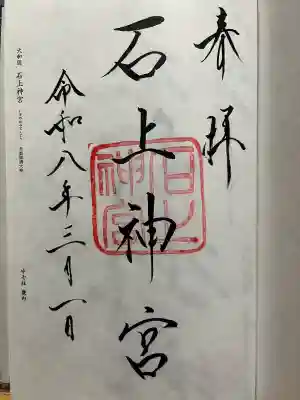 奉拝
石上神宮
石上神宮
令和八年三月一日
大和国 石上神宮